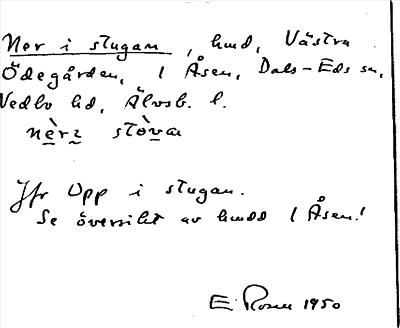 Ner i stugan, hmd, Västra
Ödegården, 1 Åsen, Dals-Eds sn,
Vedbo hd, Älvsb. l.
nè̱rẕ stò̱va
Jfr Upp i stugan.
Se översikt av hmdd 1 Åsen!
E. Rosen 1950